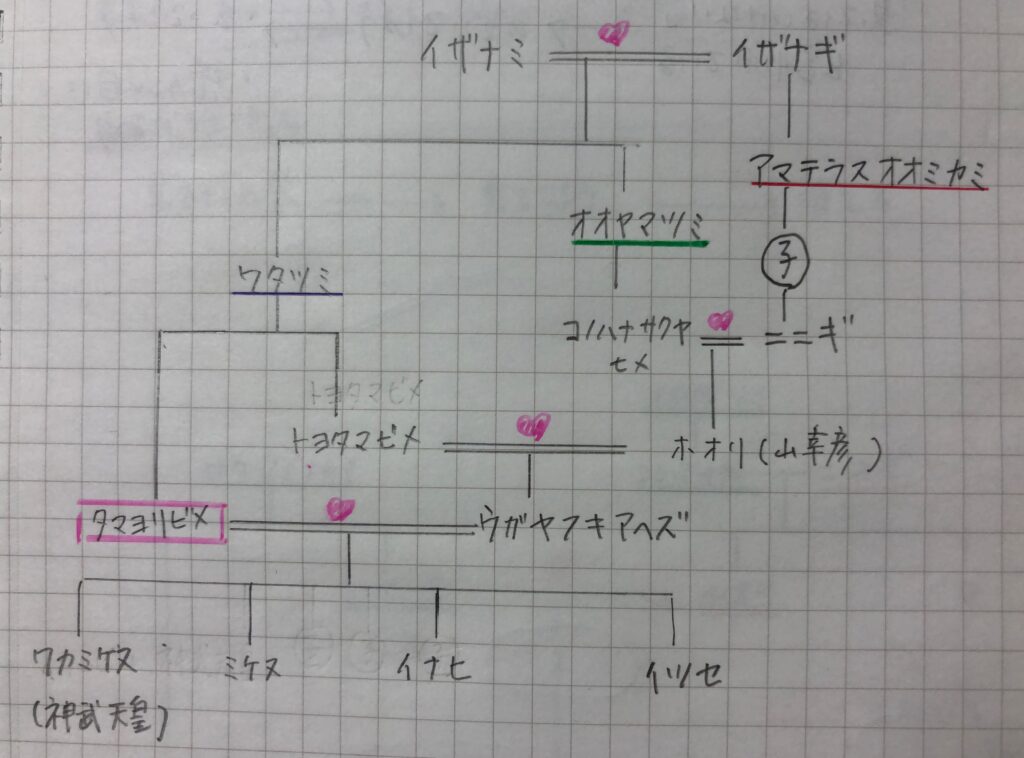 イザナミ
イザナギ
アマテラスオオミカミ
オオヤマツミ
子
ワタツミ
コノハナサクヤ
ヒメ
ニニギ
トヨタマビメ
トヨタマビメ
ホオリ(山幸彦)
タマヨリビメ
ウガヤフキアヘズ
ワカミケヌ
(神武天皇)
ミケヌ
イナヒ
イツセ